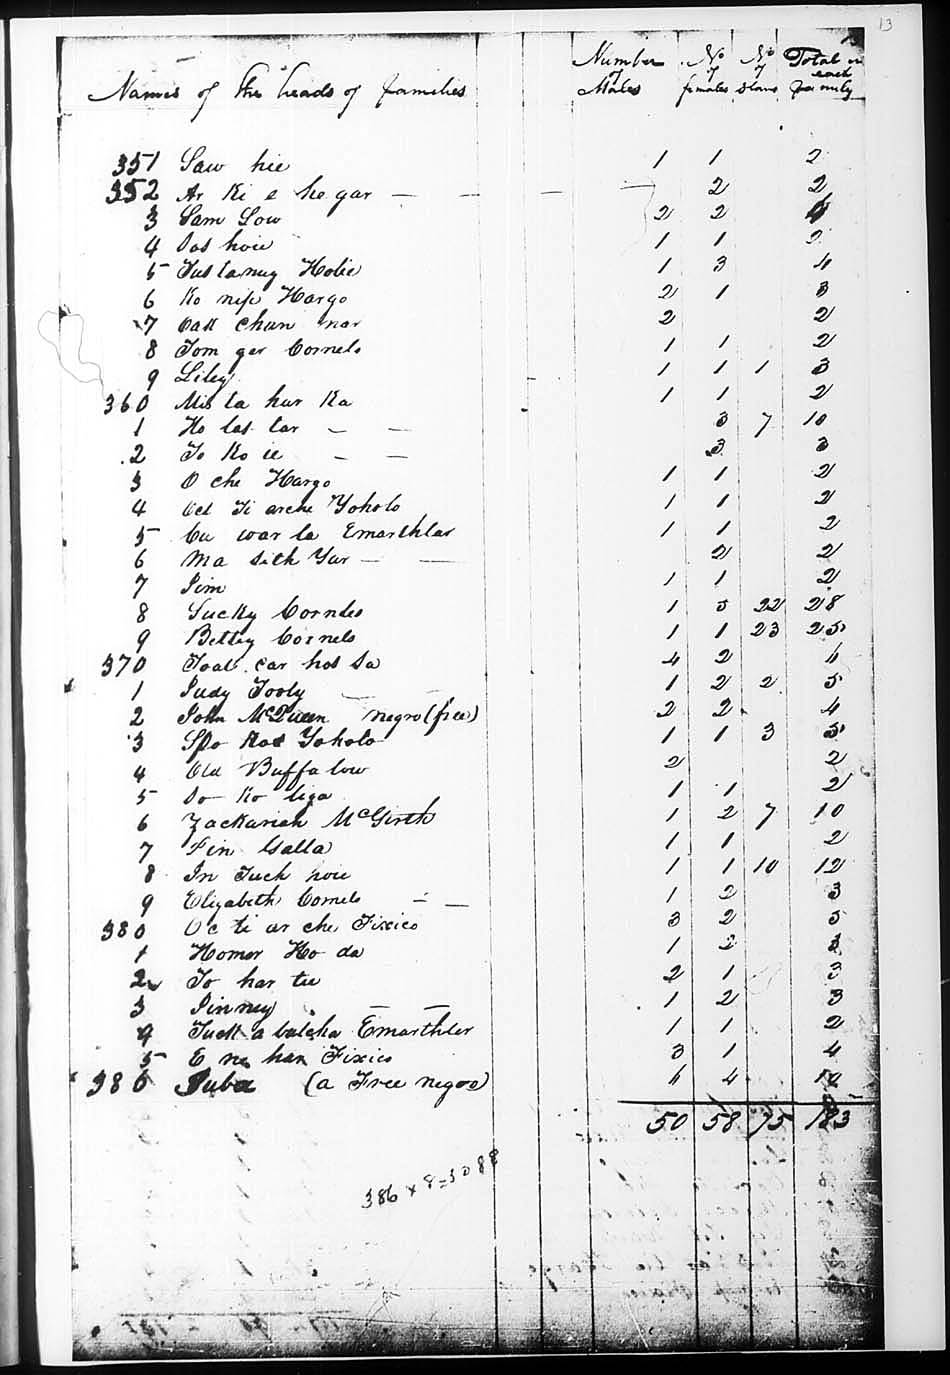 13
Names of the heads of families Number of Males No of females No of Slaves Total in each family
351 Saw hie 1 1 2
352 Ar Ki e he gar — — — — 2 2
3 Sam Low 2 2 4
4 hoie 1 1 2
5 Tustanug Hobie 1 3 4
6 Ko nip Hargo 2 1 3
7 chun nar 2 2
8 Tom ger Cornels 1 1 2
9 Liley 1 1 1 3
360 Mis ta hur Ka 1 1 2
1 Ho las tar — — 3 7 10
2 To Ko ie — — 3 3
3 O che Hargo 1 1 2
4 Oct Ti arche Yoholo 1 1 2
5 Cu war la Emarthlar 1 1 2
6 Ma sith Yar — — 2 2
7 Jim 1 1 2
8 Sucky Cornles 1 5 22 28
9 Bettey Cornels 1 1 23 25
370 car hos sa 4 2 6
1 Judy Tooly — — 1 2 2 5
2 John McQueen negro (free) 2 2 4
3 Spo Kok Yoholo 1 1 3 5
4 Old Buffalow 2 2
5 So Ko liga 1 1 2
6 Zackariah McGirth 1 2 7 10
7 Fin Galla 1 1 2
8 In Tuck hoie 1 1 10 12
9 Elizabeth Cornels — — 1 2 3
380 Oc ti ar che Fixico 3 2 5
1 Homer Ho da 1 2 3
2 To har tee 2 1 3
3 Jinney — — 1 2 3
4 Tuck a batcha Emarthler 1 1 2
5 E ne han Fixico 3 1 4
386 Juba (a Free negroe) 6 4 10
50 58 75 183
386 x 8=3088